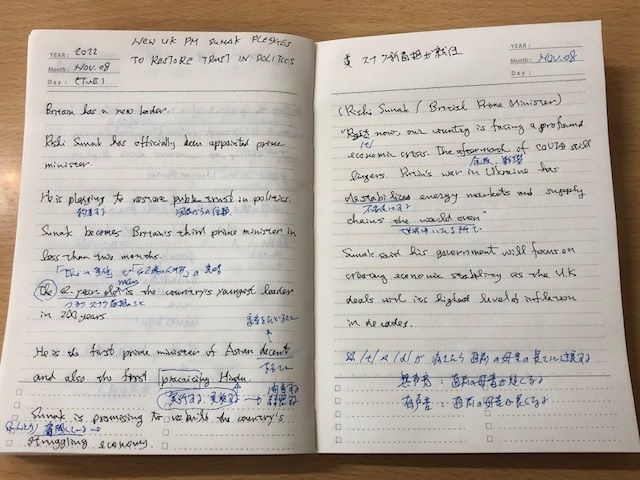 YEAR: 2022
Month: Nov. 08
Day: (TUE)
NEW UK PM SUNAK PLEDGES
TO RESTORE TRUST IN POLITICS
Britain has a new leader.
Rishi Sunak has officially been appointed prime
minister.
He is pledging to restore public trust in politics.
約束する
国民からの信頼
Sunak becomes Britain's third prime minister in
less than two months.
The 42-year-old is the country's youngest leader
in 200 years.
He is the first prime minister of Asian descent
and also the first practicing Hindu.
Sunak is promising to rebuild the country's
struggling economy.
英 スナク新首相が就任
YEAR:
Month: Nov. 08
Day:
(Rishi Sunak / British Prime Minister)
"Right now, our country is facing a profound
/t/
economic crisis. The aftermath of COVID still
余波
lingers. Putin's war in Ukraine has
destabilized energy markets and supply
不安定にする
chains the world over."
世界中いたる所で
Sunak said his government will focus on
creating economic stability as the U.K.
deals with its highest level of inflation
in decades.
無声音: 直前の母音が短くなる
有声音: 直前の母音が長くなる